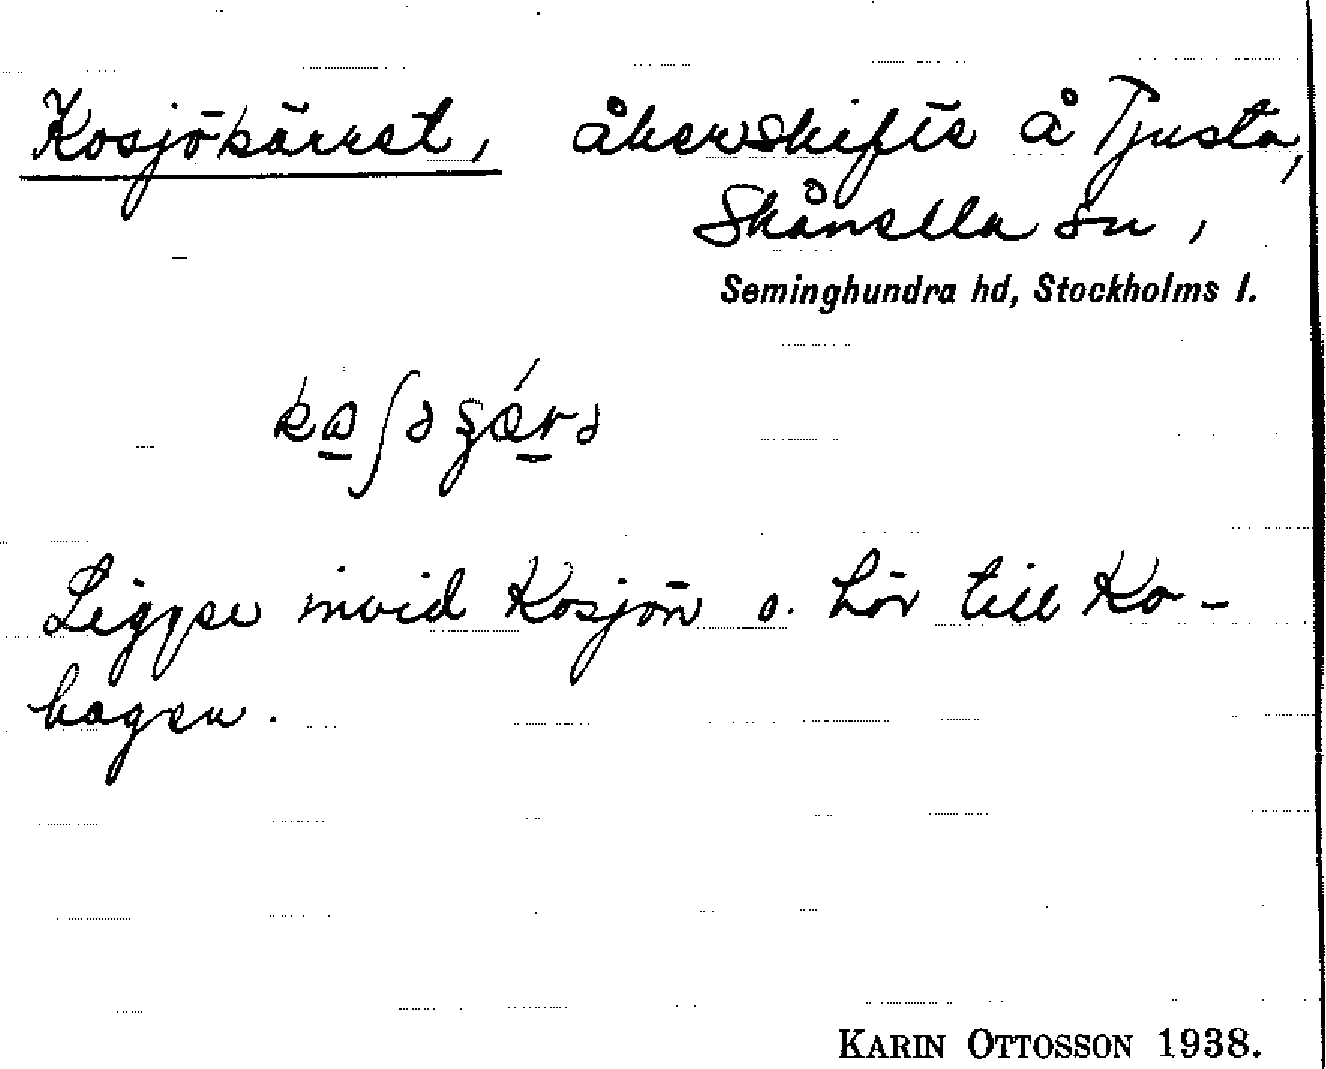 Kosjökärret, åkerskifte å Tjusta,
Skånella sn,
Seminghundra hd, Stockholms l.
Ligger invid Kosjön o. hör till Ko-
hagen.
KARIN OTTOSSON 1938.